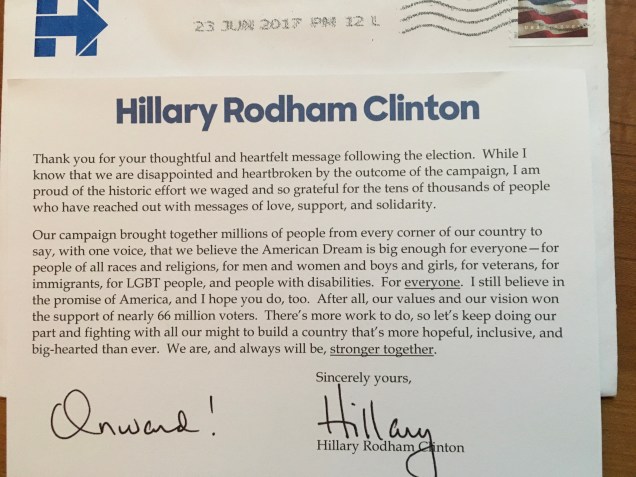 23 JUN 2017 PM 12 L
Hillary Rodham Clinton
Thank you for your thoughtful and heartfelt message following the election.  While I
know that we are disappointed and heartbroken by the outcome of the campaign, I am
proud of the historic effort we waged and so grateful for the tens of thousands of people
who have reached out with messages of love, support, and solidarity.
Our campaign brought together millions of people from every corner of our country to
say, with one voice, that we believe the American Dream is big enough for everyone—for
people of all races and religions, for men and women and boys and girls, for veterans, for
immigrants, for LGBT people, and people with disabilities.  For everyone.  I still believe in
the promise of America, and I hope you do, too.  After all, our values and our vision won
the support of nearly 66 million voters.  There's more work to do, so let's keep doing our
part and fighting with all our might to build a country that's more hopeful, inclusive, and
big-hearted than ever.  We are, and always will be, stronger together.
Sincerely yours,
Onward!
Hillary
Hillary Rodham Clinton